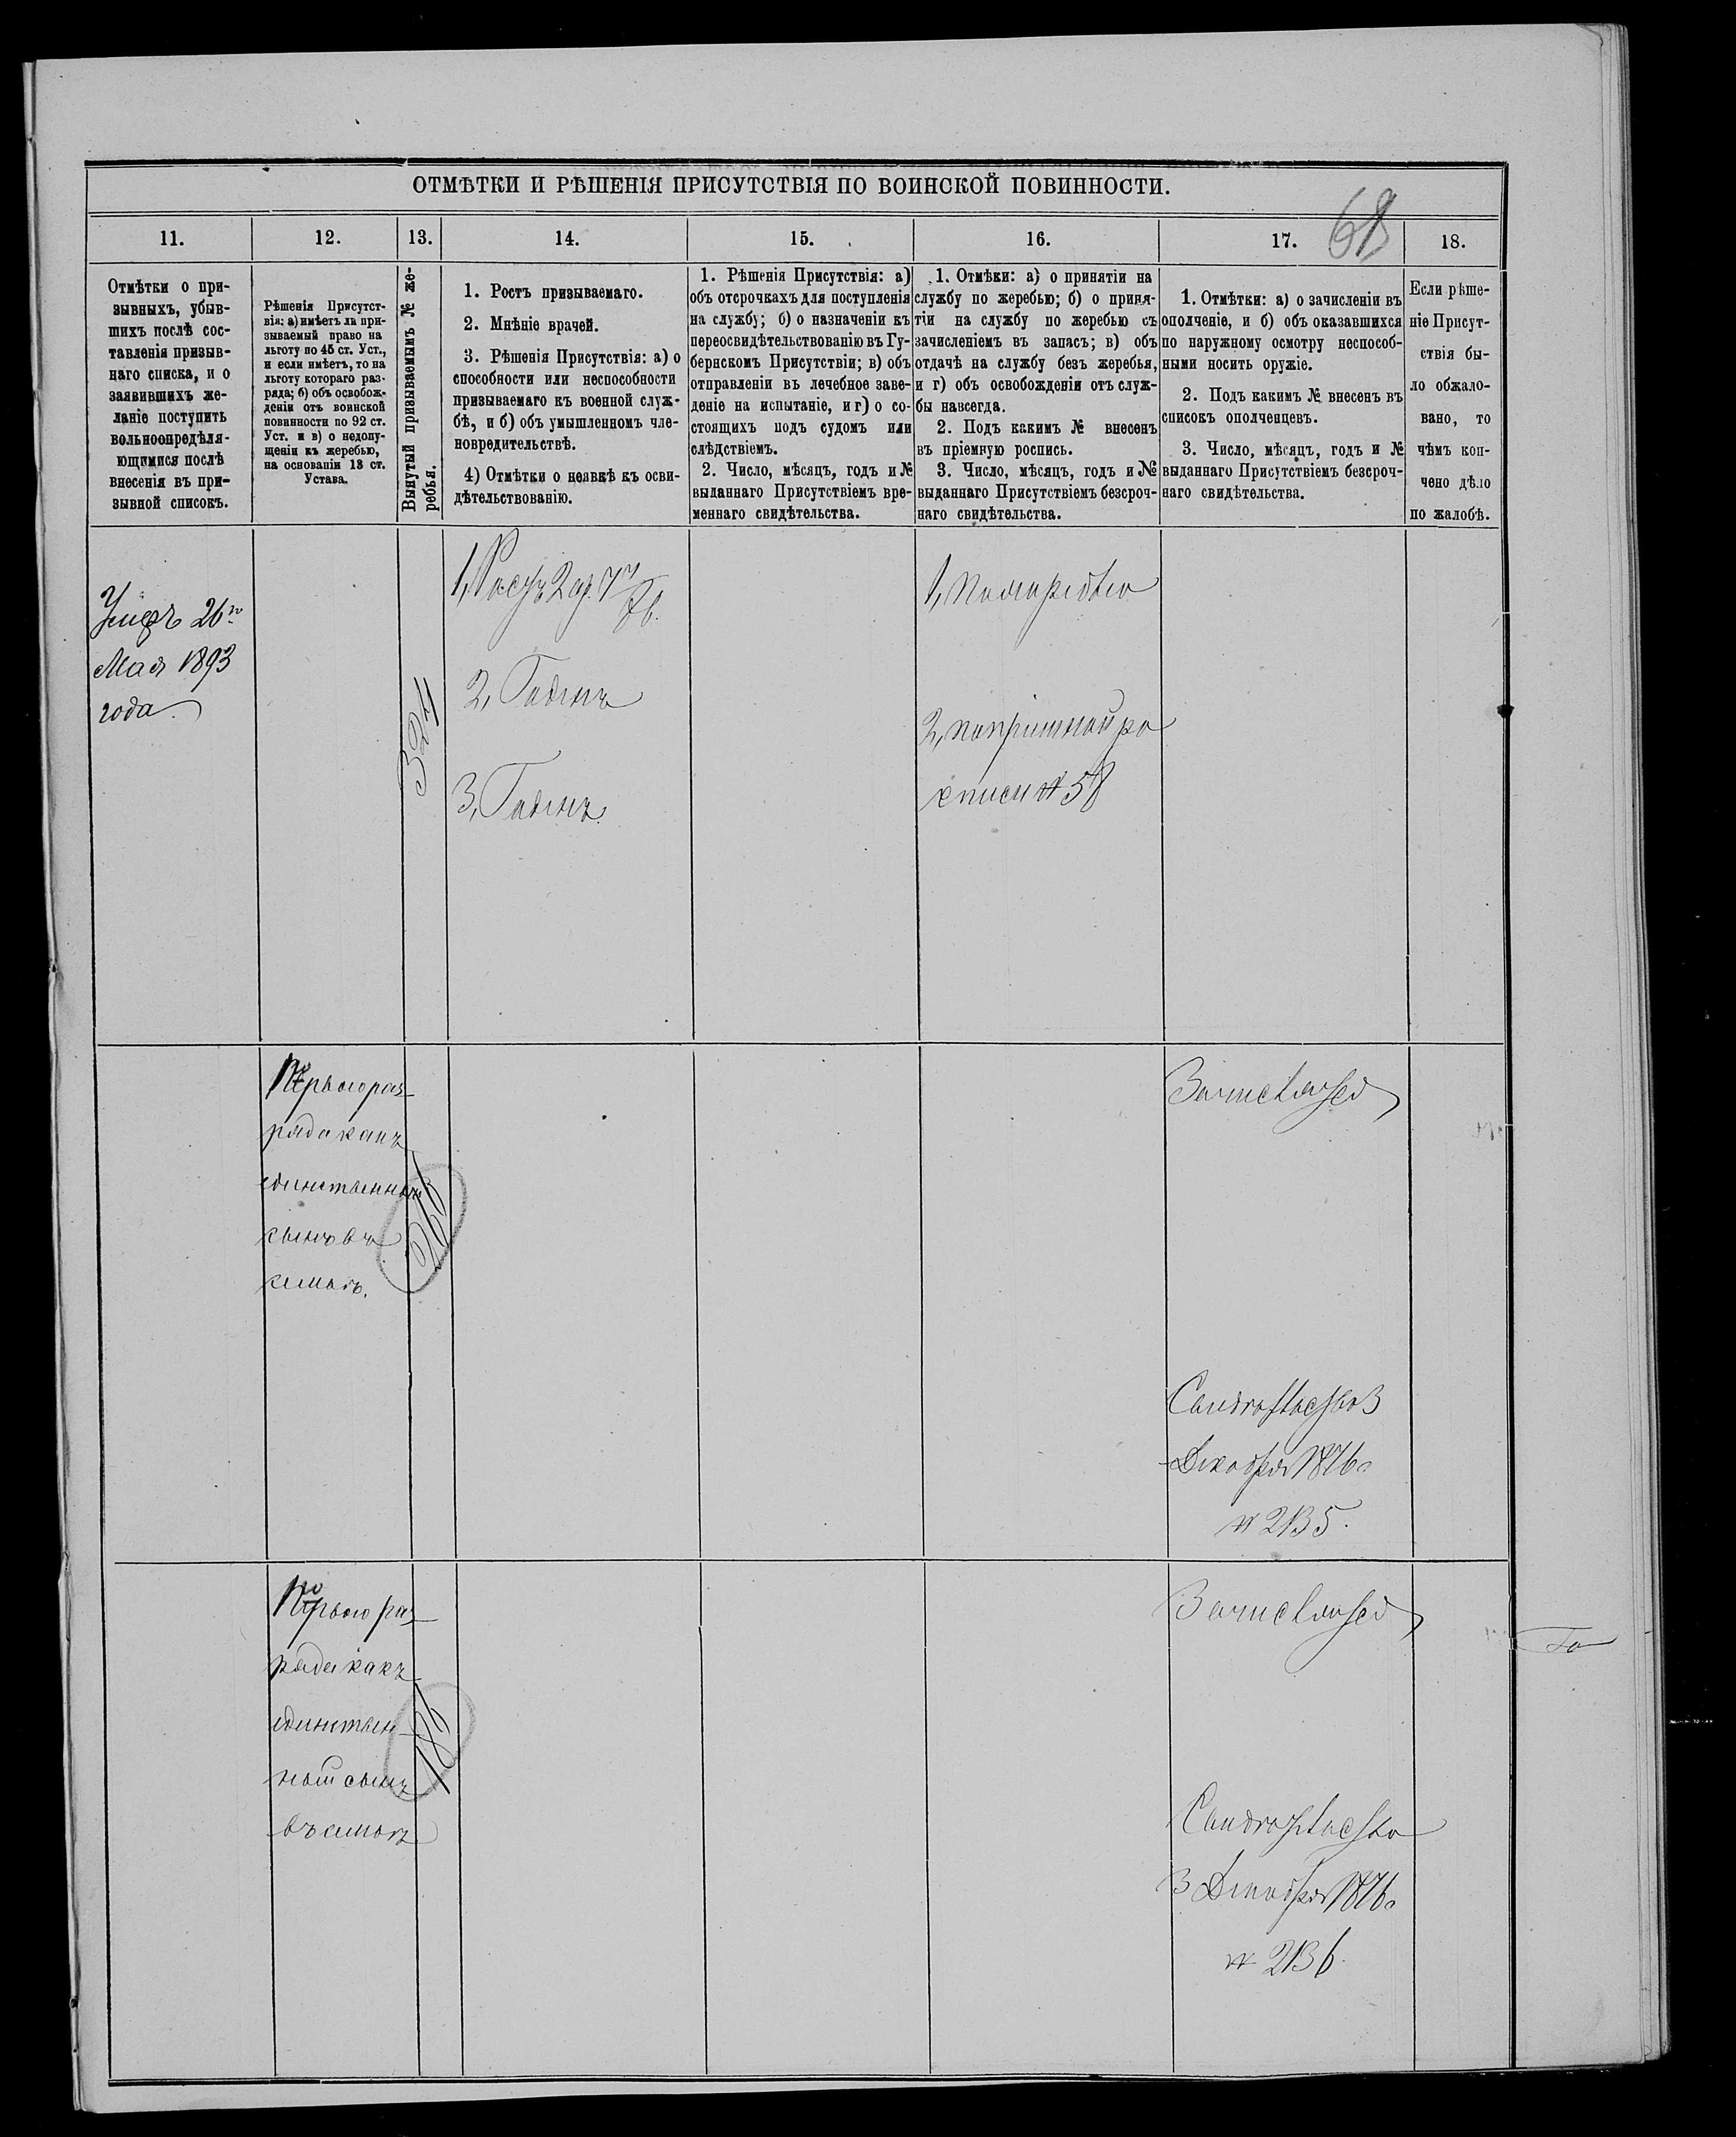 ОТМѢТКИ И РѢШЕНІЯ ПРИСУТСТВІЯ ПО ВОИНСКОЙ ПОВИННОСТИ.
68
11.
12.
13.
14.
15.
16.
17.
18.
Отмѣтки о при-
зывныхъ, убыв-
шихъ послѣ сос-
тавленія призыв-
наго списка, и о
заявившихъ же-
ланіе поступить
вольноопредѣля-
ющимися послѣ
внесенія въ при-
зывной списокъ.
Рѣшенія Присутст-
вія: а) имѣетъ ли при-
зываемый право на
льготу по 45 ст. Уст.,
и если имѣетъ, то на
льготу котораго раз-
ряда; б) объ освобож-
деніи отъ воинской
повинности по 92 ст.
Уст. и в) о недопу-
щеніи къ жеребью,
на основаніи 13 ст.
Устава.
Вынутый призываемымъ № же-
ребья.
1. Ростъ призываемаго.
2. Мнѣніе врачей.
3. Рѣшенія Присутствія: а) о
способности или неспособности
призываемаго къ военной служ-
бѣ, и б) объ умышленномъ чле-
новредительствѣ.
4) Отмѣтки о неявкѣ къ осви-
дѣтельствованію.
1. Рѣшенія Присутствія: а)
объ отсрочкахъ для поступленія
на службу; б) о назначеніи къ
переосвидѣтельствованію въ Гу-
бернскомъ Присутствіи; в) объ
отправленіи въ лечебное заве-
деніе на испытаніе, и г) о со-
стоящихъ подъ судомъ или
слѣдствіемъ.
2. Число, мѣсяцъ, годъ и №
выданнаго Присутствіемъ вре-
меннаго свидѣтельства.
1. Отмѣки: а) о принятіи на
службу по жеребью; б) о приня-
тіи на службу по жеребью съ
зачисленіемъ въ запасъ; в) объ
отдачѣ на службу безъ жеребья,
и г) объ освобожденіи отъ служ-
бы навсегда.
2. Подъ какимъ № внесенъ
въ пріемную роспись.
3. Число, мѣсяцъ, годъ и №
выданнаго Присутствіемъ безсроч-
наго свидѣтельства.
1. Отмѣтки: а) о зачисленіи въ
ополченіе, и б) объ оказавшихся
по наружному осмотру неспособ-
ными носить оружіе.
2. Подъ какимъ № внесенъ въ
списокъ ополченцевъ.
3. Число, мѣсяцъ, годъ и №
выданнаго Присутствіемъ безсроч-
наго свидѣтельства.
Если рѣше-
ніе Присут-
ствія бы-
ло обжало-
вано, то
чѣмъ кон-
чено дѣло
по жалобѣ.
26го
Мая 1893
года
324
1, Ростъ 2 ар.
2, Годенъ
3, Годенъ
2, попріемной ро
списи № 58
Перваго раз
ряда какъ
единственный
сынъ въ
семьѣ.
Свидѣтельство 3
Декабря 1876
№ 2135.
Перваго раз
ряда какъ
единствен
ный сынъ
въ семьѣ
185
Свидѣтельство
3 Декабря 1876
№ 2136.